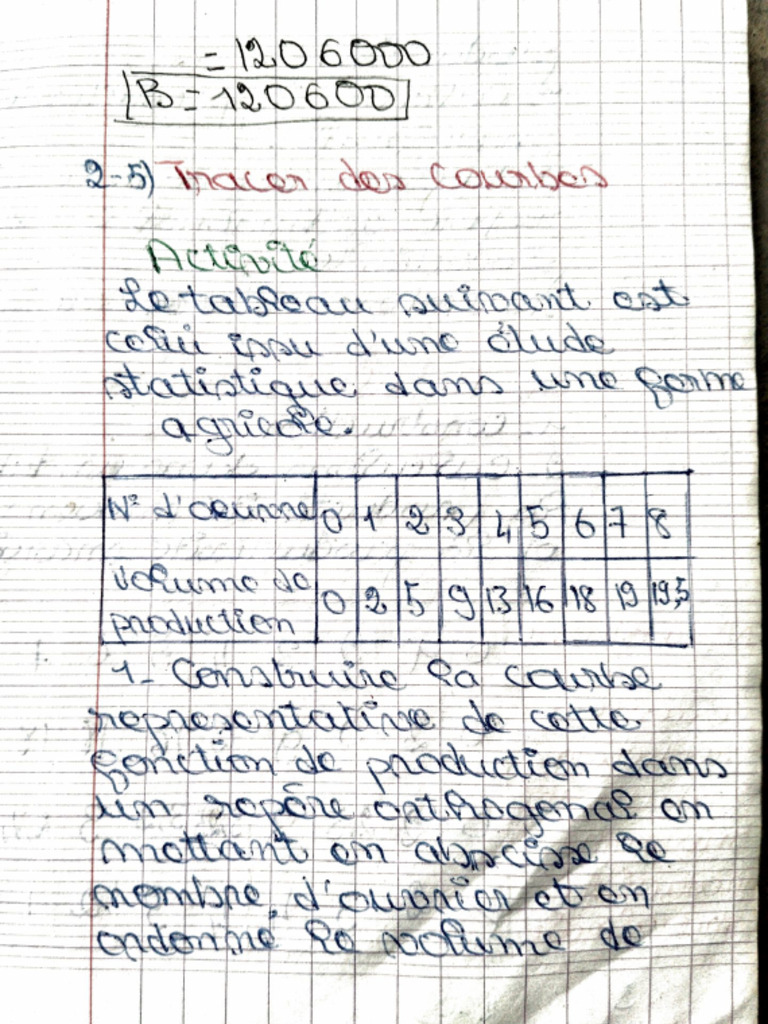 = 1206000
B = 120600
2-5) Tracer des courbes
Activité
Le tableau suivant est
celui issu d'une étude
statistique dans une ferme
agricole.
N° d'ouvrier 0 1 2 3 4 5 6 7 8
Volume de
production 0 2 5 9 13 16 18 19 19,5
1- Construire la courbe
représentative de cette
fonction de production dans
un repère orthogonal en
mettant en abscisse le
nombre d'ouvrier et en
ordonné le volume de